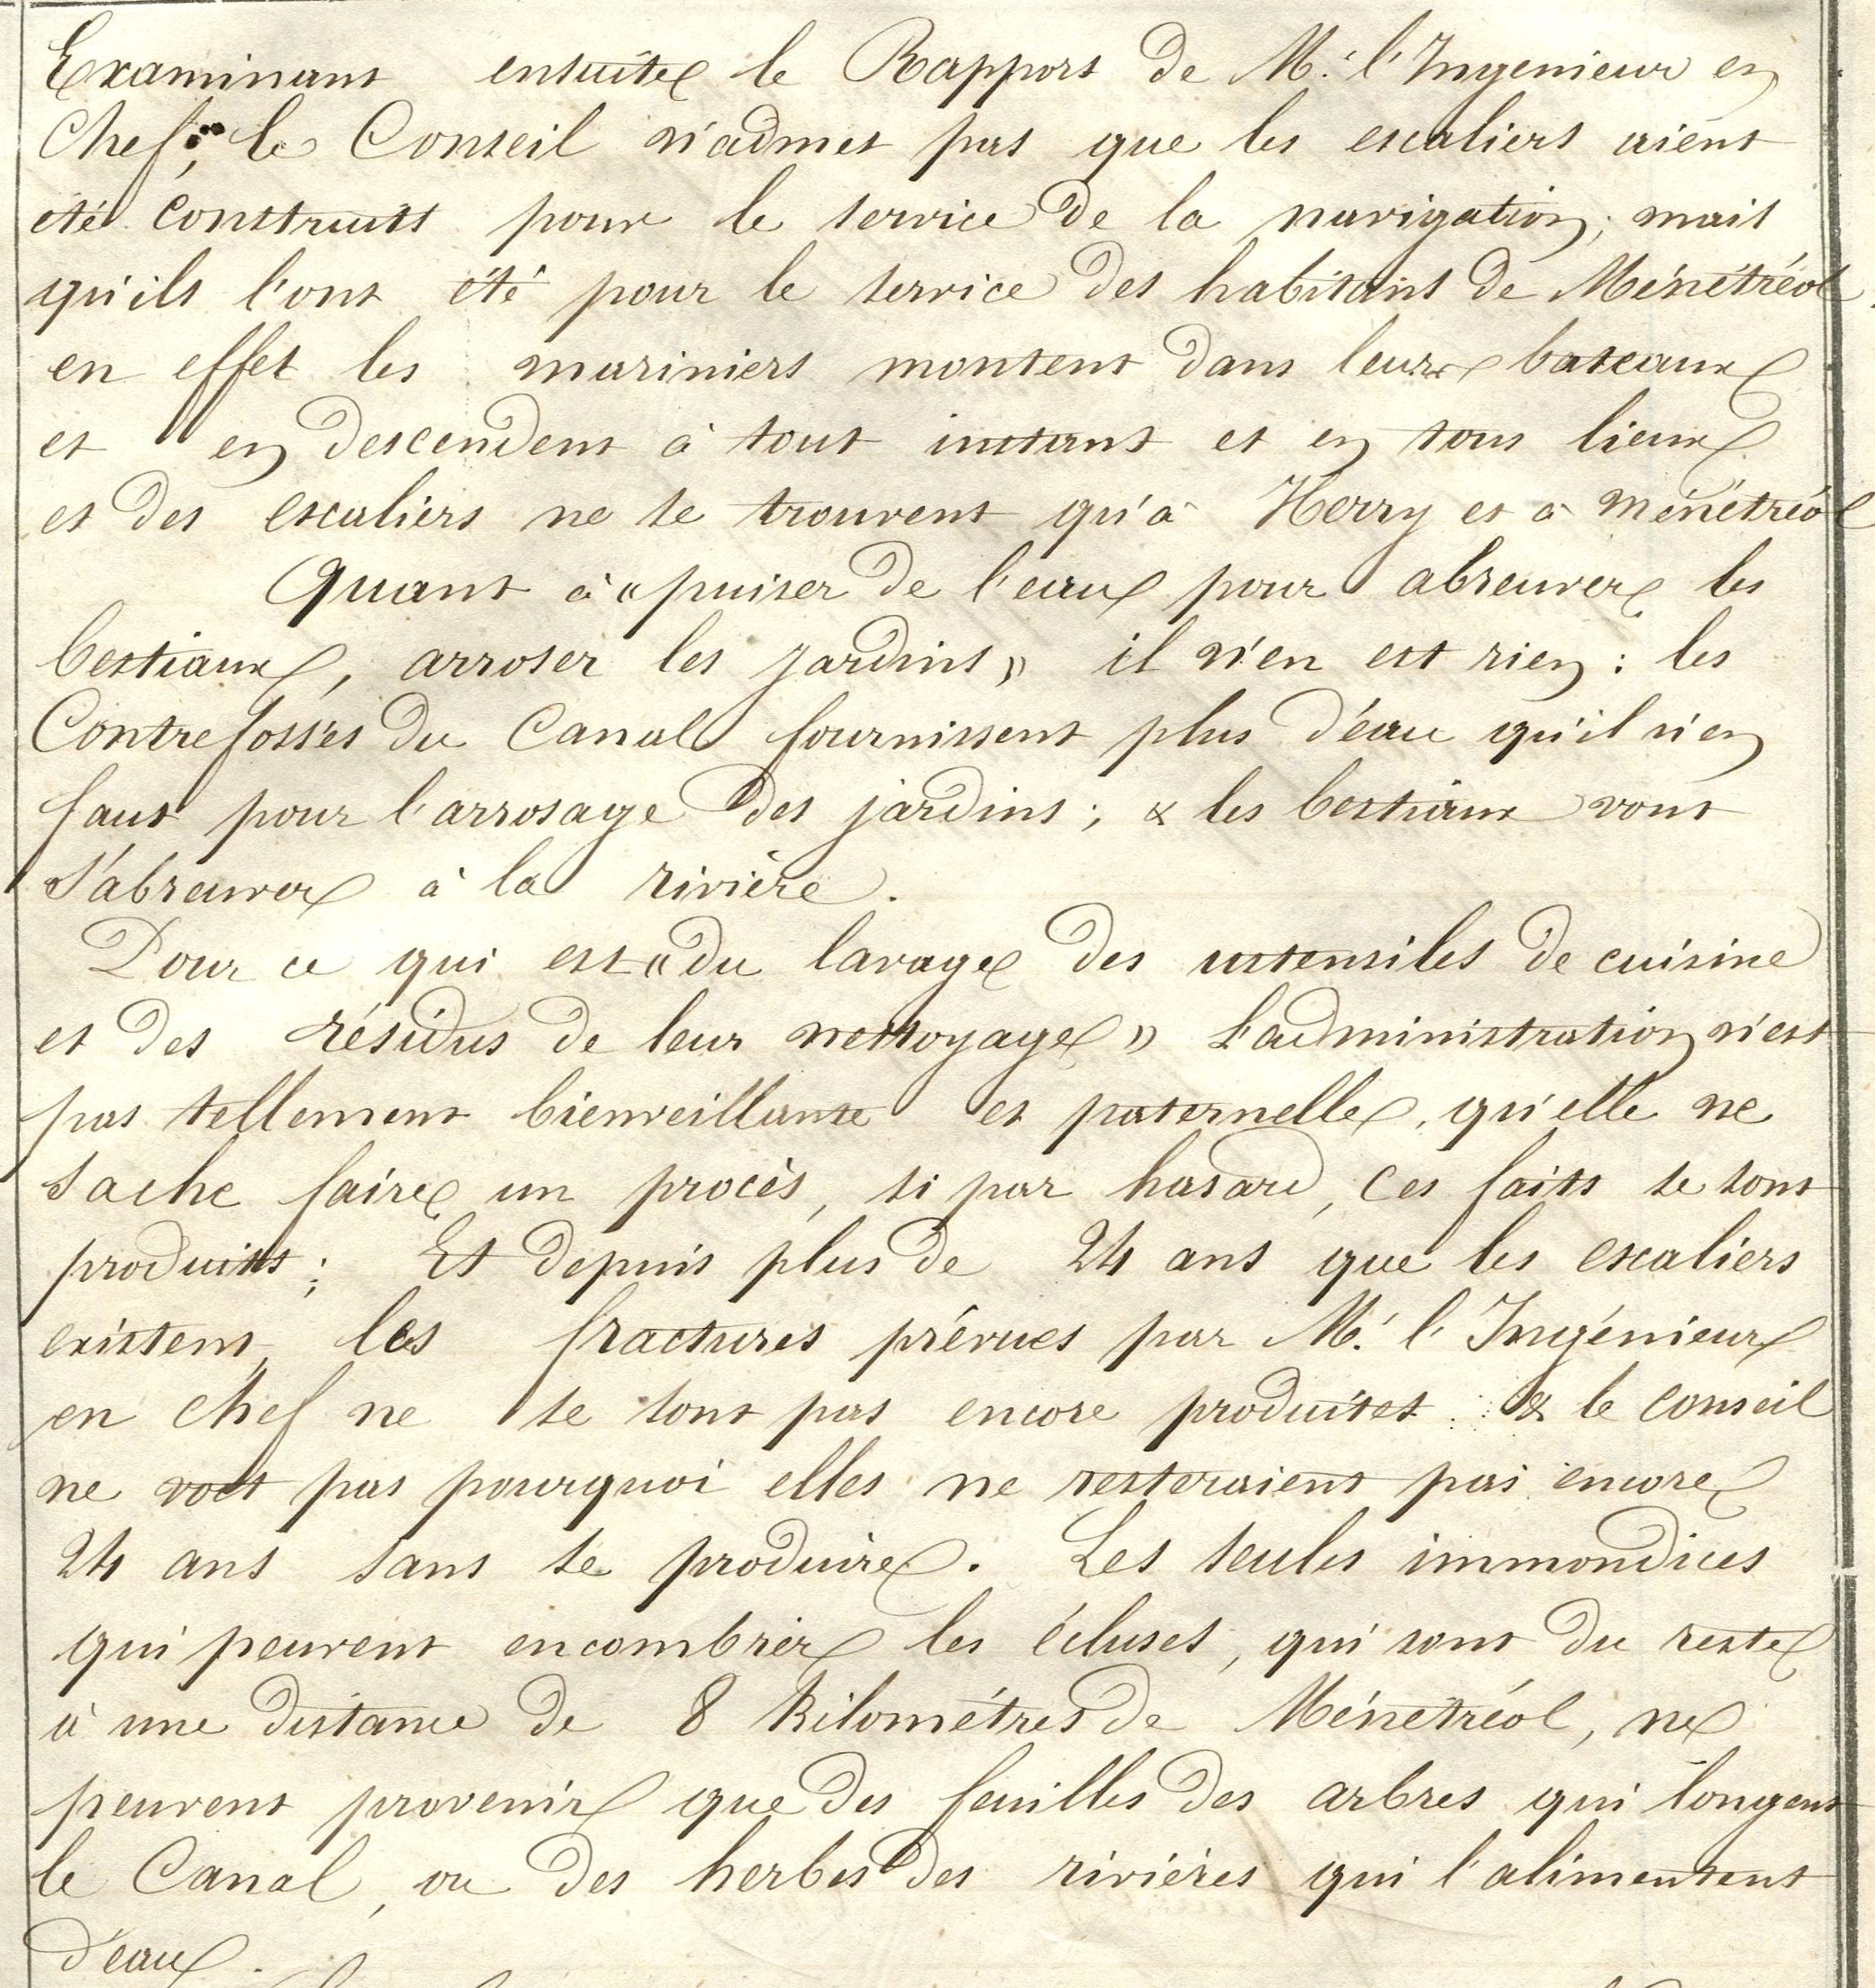 Examinant ensuite le Rapport de M.r l'Ingenieur en
Chef, le Conseil n'admet pas que les escaliers aient
été construits pour le service de la navigation; mais
qu'ils l'ont été pour le service des habitants de Ménétréol.
en effet les mariniers montent dans leurs bateaux
et en descendent à tout instant et en tous lieux
et des escaliers ne se trouvent qu'à Herry et à Ménétréol
Quant à « puiser de l'eau pour abreuver les
bestiaux, arroser les jardins » il n'en est rien : les
Contrefossés du Canal fournissent plus d'eau qu'il n'en
faut pour l'arrosage des jardins; & les bestiaux vont
s'abreuver à la rivière.
Pour ce qui est « du lavage des ustensiles de cuisine
et des résidus de leur nettoyage » L'administration n'est
pas tellement bienveillante et paternelle, qu'elle ne
sache faire un procès, si par hasard, ces faits se sont
produits; Et depuis plus de 24 ans que les escaliers
existent, les fractures prévues par M.r l'Ingénieur
en chef ne se sont pas encore produites : & le conseil
ne voit pas pourquoi elles ne resteraient pas encore
24 ans sans se produire. Les seules immondices
qui peuvent encombrer les écluses, qui sont du reste
à une distance de 8 Kilométres de Ménetréol, ne
peuvent provenir que des feuilles des arbres qui longent
le Canal, ou des herbes des rivières qui l'alimentent
d'eau.